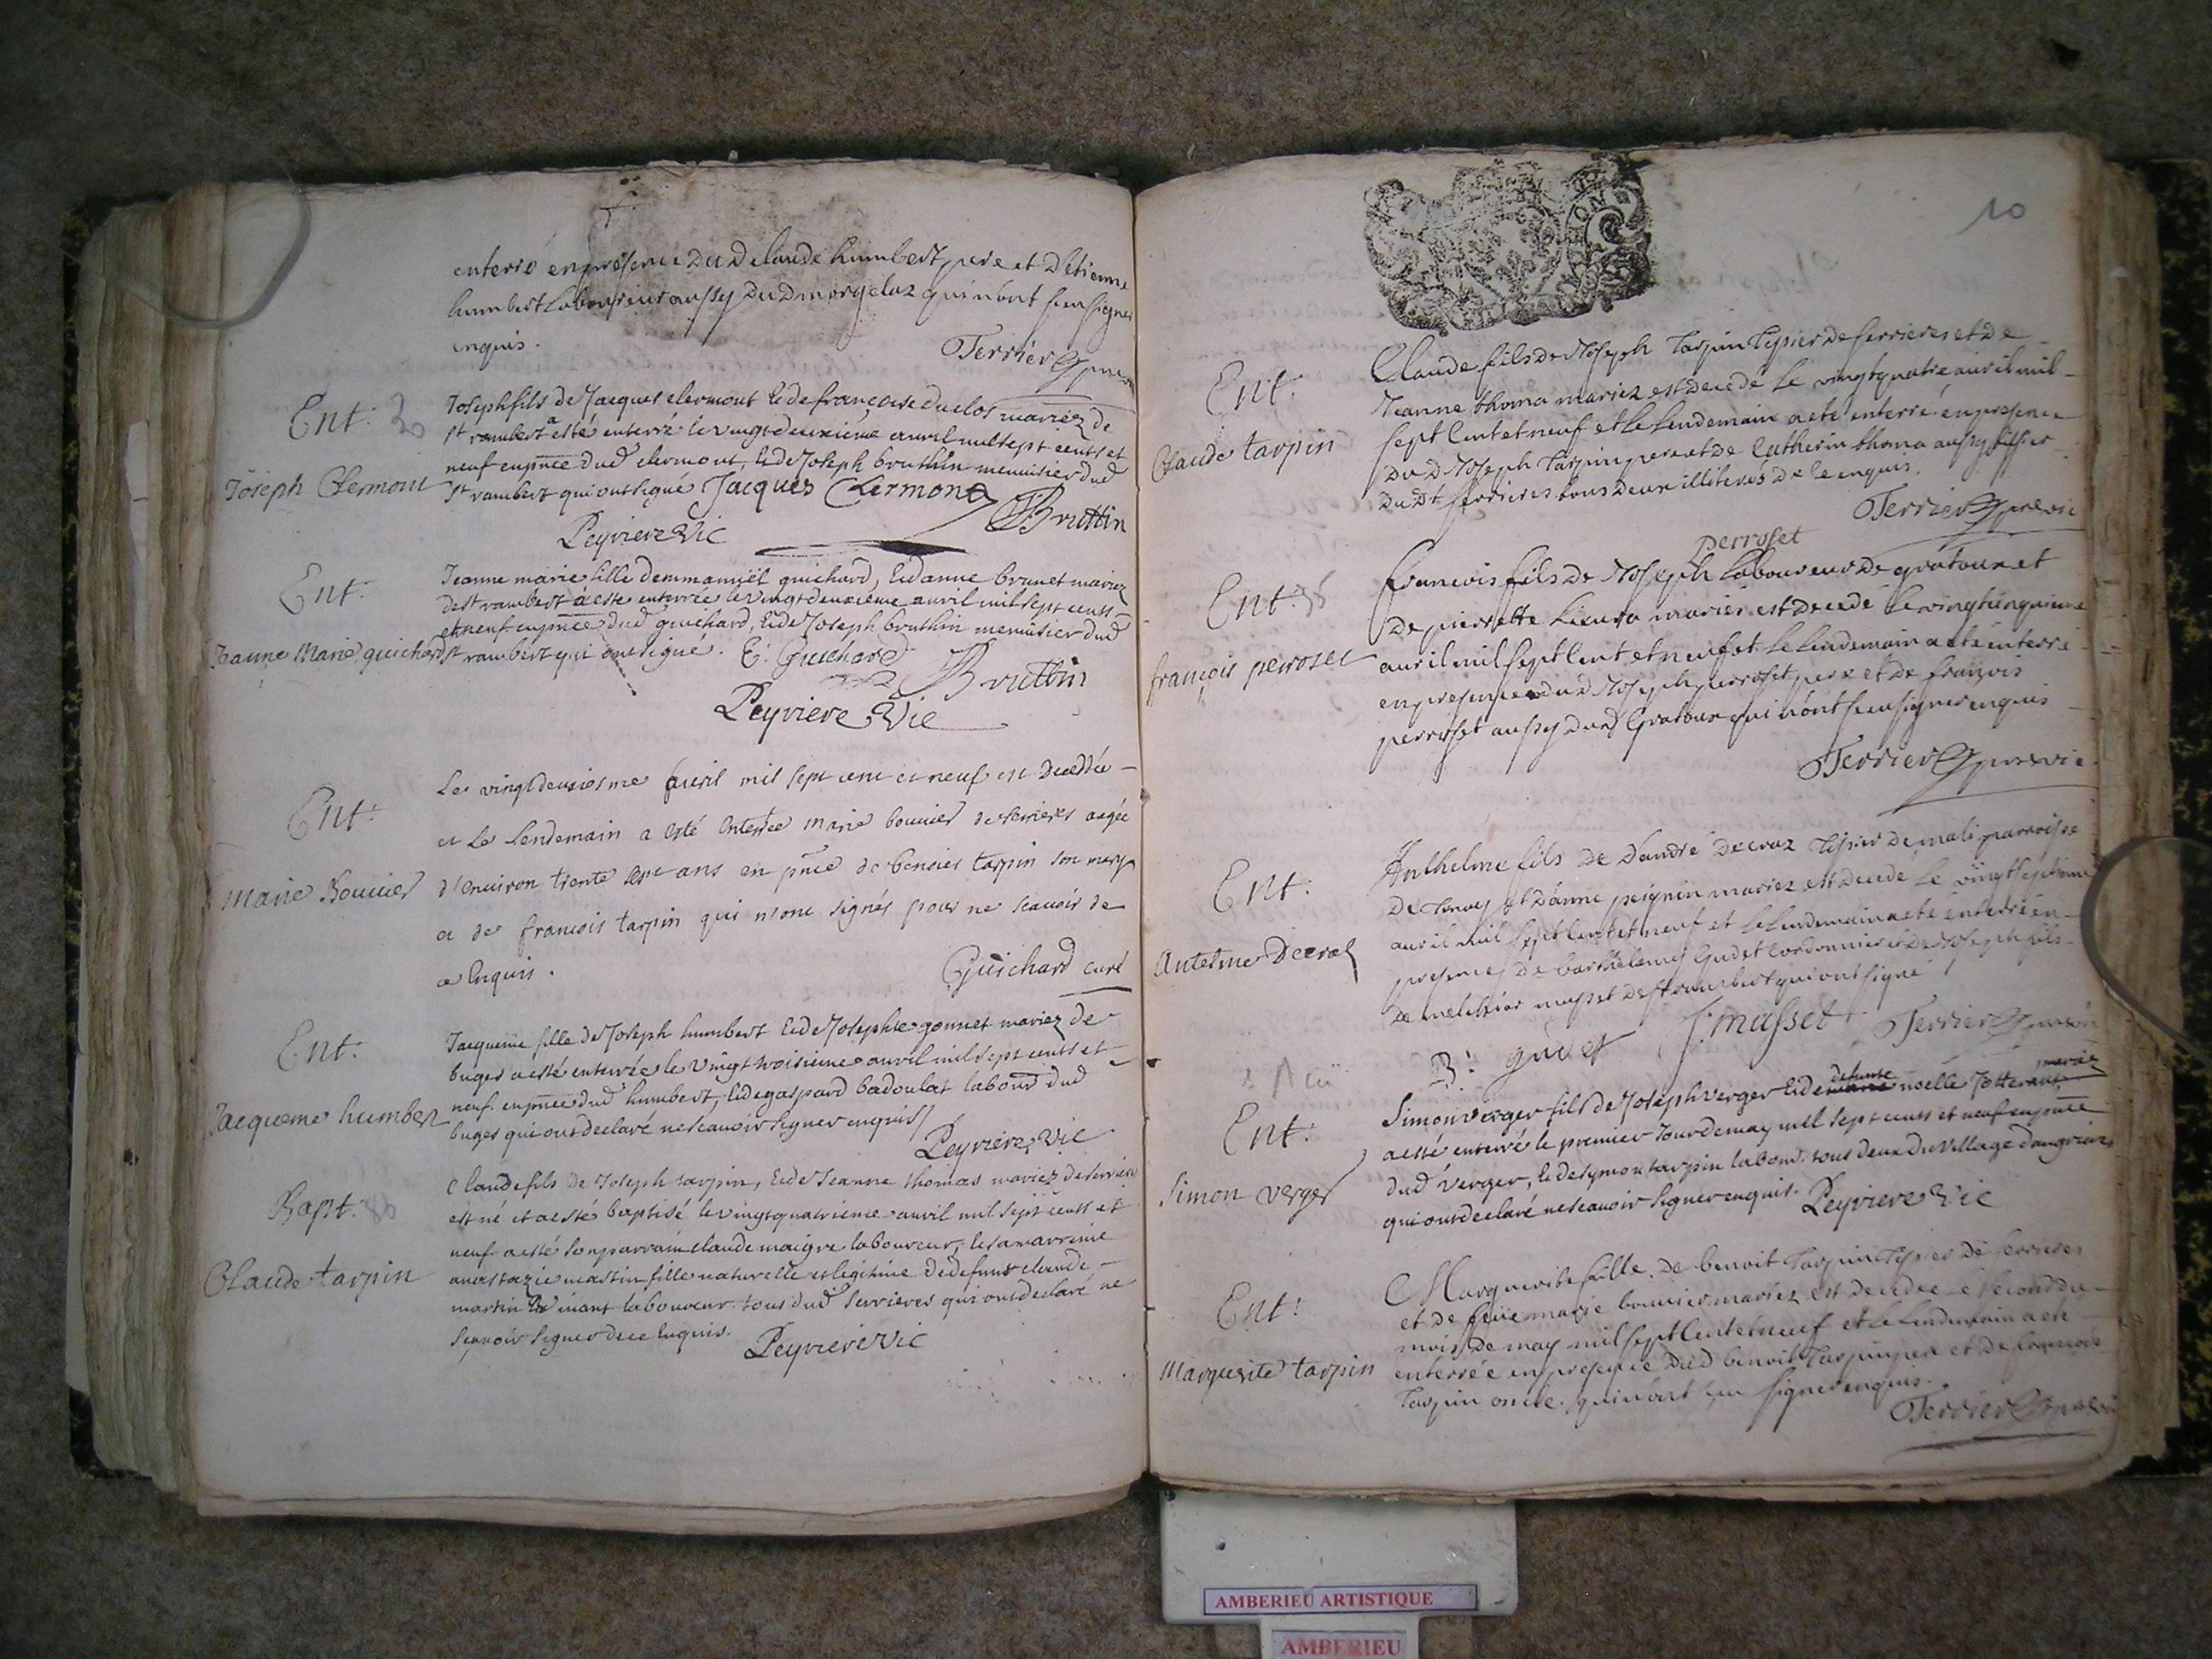 enterré en présence dud claude humbert pere et d'étienne
humbert laboureur aussy dud morgelaz qui n'ont sceu signer
enquis.
Terrier
Ent.
Joseph Clermont
Joseph fils de Jacques clermont & de françoise duclos mariez de
st rambert a esté enterré le vingt deuxième avril mil sept cents et
neuf en pnce dud clermont, & de Joseph bruthin menuisier dud
st rambert qui ont signé Jacques Clermont
JBruttin
Peyriere Vic
Ent.
Jeanne Marie guichard
Jeanne marie fille d'emmanuël guichard, & d'anne brunet mariez
de st rambert a esté enterrée le vingt deuxième avril mil sept cents
et neuf en pnce dud guichard, & de Joseph bruthin menuisier dud
st rambert qui ont signé. E. Guichard
JBruttin
Peyriere Vic
Ent.
Marie Bouvier
Le vingt deuxiesme avril mil sept cent et neuf est deceddée
et le lendemain a esté enterrée marie bouvier de serrieres aagée
d'environ trente sept ans en pnce de benoict tarpin son mary
et de francois tarpin qui n'ont signés pour ne scavoir de
ce enquis.
Guichard curé
Ent.
Jacqueme humbert
Jacqueme fille de Joseph humbert & de Josephte gonnet mariez de
buges a esté enterrée le vingt troisieme avril mil sept cents et
neuf en pnce dud humbert, & de gaspard badoulat labour dud
buges qui ont declaré ne scavoir signer enquis /
Peyriere Vic
Bapt.
Claude tarpin
Claude fils de Joseph tarpin, & de Jeanne thomas mariez de serrieres
est né et a esté baptisé le vingt quatrieme avril mil sept cents et
neuf a esté son parrain claude maigre laboureur, & sa marreine
anastazie martin fille naturelle et legitime de defunt claude
martin vivant laboureur tous dud serrieres qui ont declaré ne
scavoir signer de ce enquis.
Peyriere Vic
10
Ent.
Claude tarpin
Claude fils de Joseph Tarpin tissier de serrieres et de
Jeanne thoma mariez est decedé le vingtquatre avril mil
sept cent et neuf et le lendemain a eté enterré en presence
du d Joseph Tarpin pere et de Catherin thoma aussy tissier
du dt serrieres tous deux illiterés de ce enquis.
Terrier
Ent.
françois perroset
perroset
francois fils de Joseph laboureur de gratoux et
de pierrette mariés est decedé le vingtcinquieme
avril mil sept cent et neuf et le lendemain a eté enterré
en presence dud Joseph perroset pere et de françois
perroset aussy dud Gratoux qui n'ont sceu signer enquis
Terrier
Ent.
Antelme Decroz
Anthelme fils de d'andré decroz tissier de parroisse
de et d'anne peignin mariez est decedé le vingtseptieme
avril mil sept cent et neuf et le lendemain a eté enterré en
presence de barthelemy Gudet cordonnier et de Joseph fils
de melchior musset de st rambert qui ont signé /
B. gudet
J. musset
Terrier
Ent.
Simon verger
Simon verger fils de Joseph verger & de defunte noelle
a esté enterré le premier Jour de may mil sept cents et neuf en pnce
dud verger, & de symon tarpin labour. tous deux du village d'angrieres
qui ont declaré ne scavoir signer enquis.
Peyriere Vic
Ent.
Marguerite tarpin
Marguerite fille de benoit Tarpin tissier de serrieres
et de feüe marie bouvier mariez est decedée le second du
mois de may mil sept cent et neuf et le lendemain a eté
enterrée en presence dud benoit Tarpin pere et de francois
Tarpin oncle qui n'ont sceu signer enquis.
Terrier
AMBERIEU ARTISTIQUE
AMBERIEU